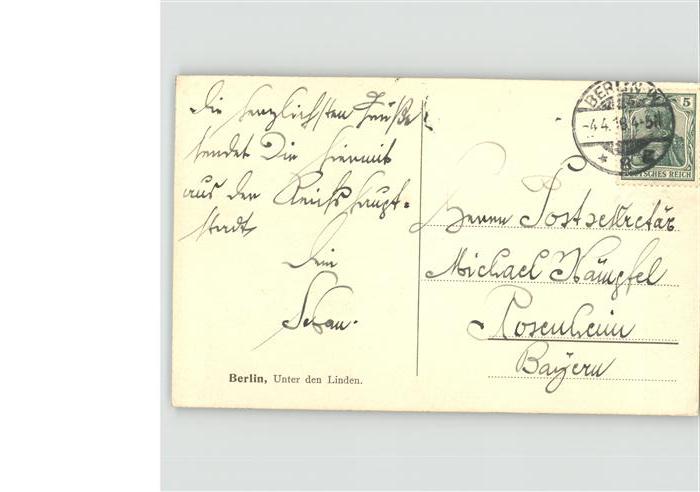 Die herzlichsten Grüße
sendet Dir hiermit
aus der Reichshaupt-
stadt
Dein
Berlin, Unter den Linden.
BERLIN W
-4.4.18.4-5N
* 8
5
DEUTSCHES REICH
Herrn Postsekretär
Michael Kämpfel
Rosenheim
Bayern